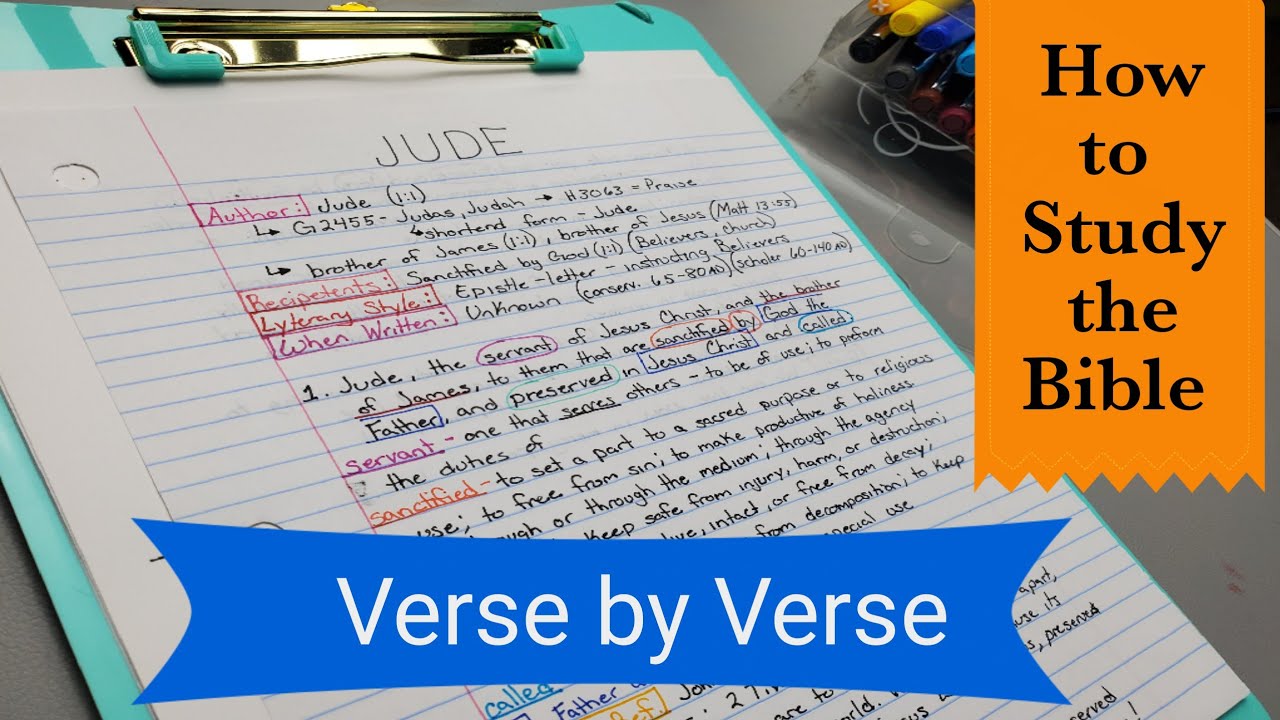 JUDE
Author: Jude (1:1)
↳ G2455 - Judas, Judah → H3063 = Praise
↳ shortend form - Jude
↳ brother of James (1:1), brother of Jesus (Matt 13:55)
Recipetents: Sanctified by God (1:1) (Believers, church)
Lyterary Style: Epistle - letter - instructing Believers
When Written: Unknown (conserv. 65-80 AD) (scholer 60-140 AD)
1. Jude, the servant of Jesus Christ, and the brother
of James, to them that are sanctified by God the
Father, and preserved in Jesus Christ and called
servant - one that serves others - to be of use; to preform
the duties of
sanctified - to set a part to a sacred purpose or to religious
use; to free from sin; to make productive of holiness
through or through the medium; through the agency
keep safe from injury, harm, or destruction;
live, intact, or free from decay;
from decomposition; to keep
special use
apart,
use its
preserved
called
Father
are to
world.
served
How
to
Study
the
Bible
Verse by Verse